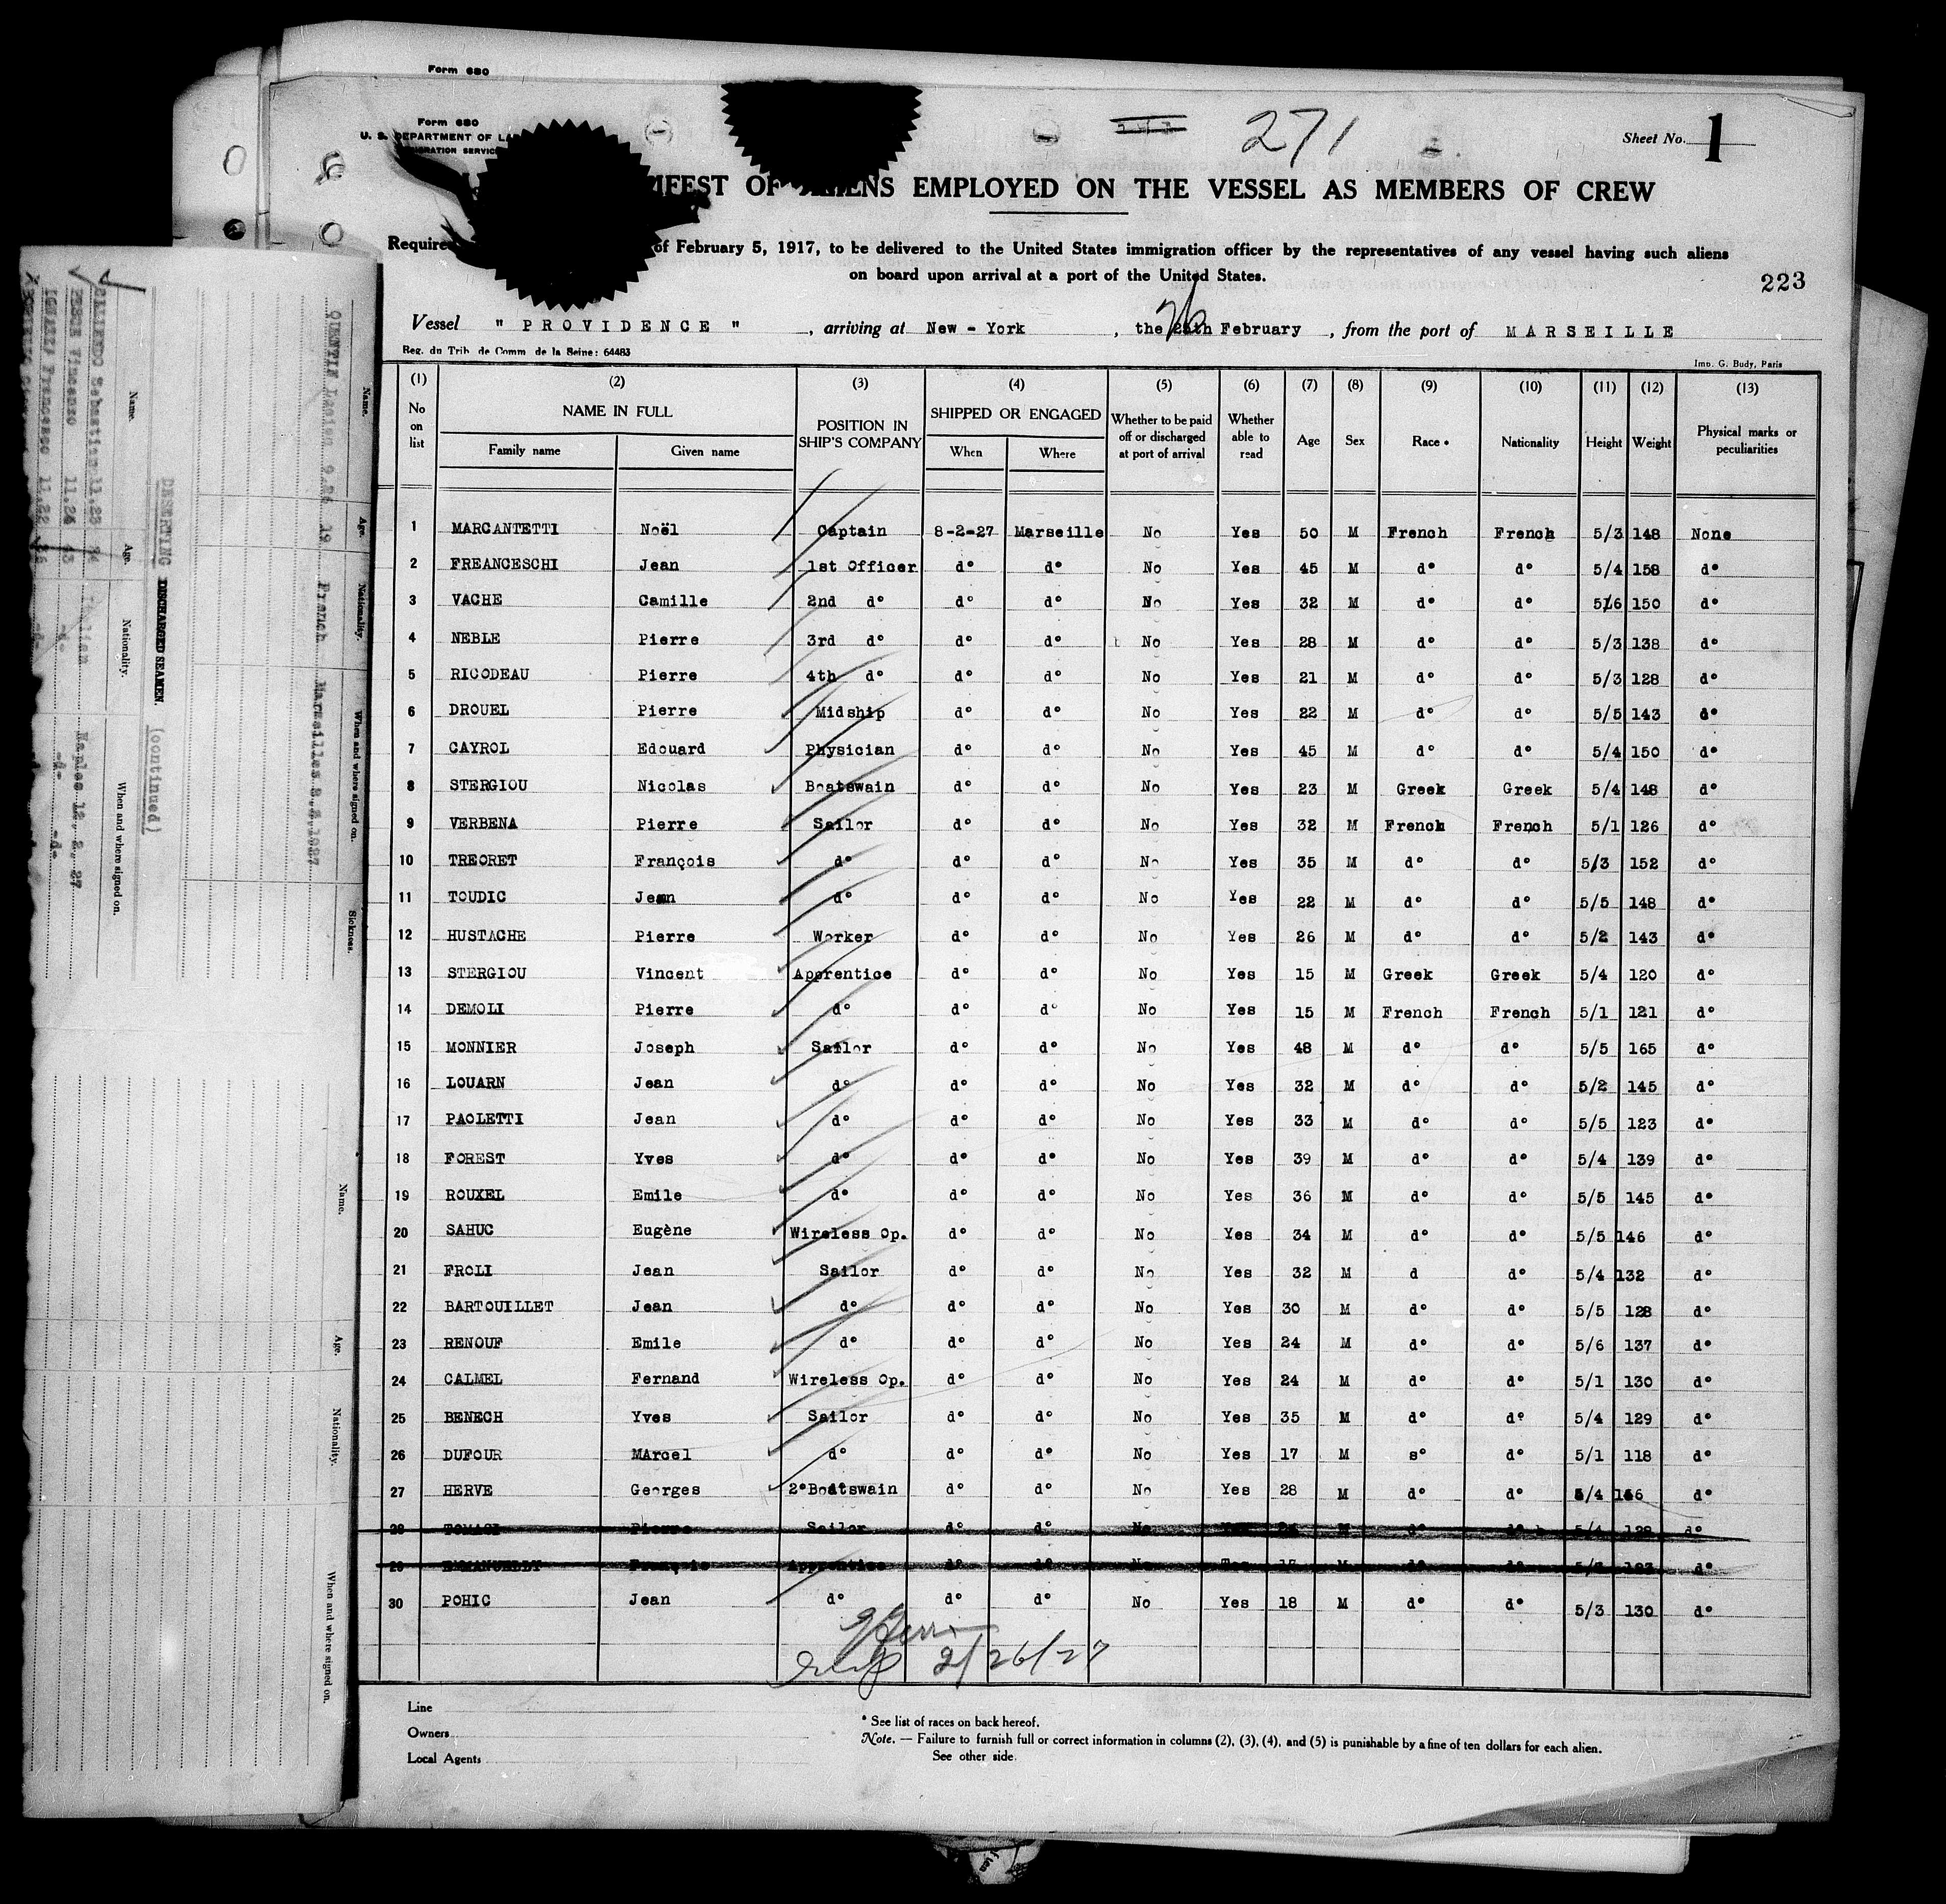 Form 680
Form 680
U. S. DEPARTMENT OF
271
Sheet No. 1
OF ALIENS EMPLOYED ON THE VESSEL AS MEMBERS OF CREW
of February 5, 1917, to be delivered to the United States immigration officer by the representatives of any vessel having such aliens
on board upon arrival at a port of the United States.
223
Vessel " PROVIDENCE " , arriving at New - York , the 26 February , from the port of MARSEILLE
Reg. du Trib. de Comm. de la Seine: 64483
Imp. G. Budy, Paris
(1) (2) (3) (4) (5) (6) (7) (8) (9) (10) (11) (12) (13)
No on list NAME IN FULL Family name Given name POSITION IN SHIP'S COMPANY SHIPPED OR ENGAGED When Where Whether to be paid off or discharged at port of arrival Whether able to read Age Sex Race * Nationality Height Weight Physical marks or peculiarities
1 MARCANTETTI Noël Captain 8-2-27 Marseille No Yes 50 M French French 5/3 148 None
2 FREANCESCHI Jean 1st Officer d° d° No Yes 45 M d° d° 5/4 158 d°
3 VACHE Camille 2nd d° d° d° No Yes 32 M d° d° 5/6 150 d°
4 NEBLE Pierre 3rd d° d° d° No Yes 28 M d° d° 5/3 138 d°
5 RICODEAU Pierre 4th d° d° d° No Yes 21 M d° d° 5/3 128 d°
6 DROUEL Pierre Midship d° d° No Yes 22 M d° d° 5/5 143 d°
7 CAYROL Edouard Physician d° d° No Yes 45 M d° d° 5/4 150 d°
8 STERGIOU Nicolas Boatswain d° d° No Yes 23 M Greek Greek 5/4 148 d°
9 VERBENA Pierre Sailor d° d° No Yes 32 M French French 5/1 126 d°
10 TREORET François d° d° d° No Yes 35 M d° d° 5/3 152 d°
11 TOUDIC Jean d° d° d° No Yes 22 M d° d° 5/5 148 d°
12 HUSTACHE Pierre Worker d° d° No Yes 26 M d° d° 5/2 143 d°
13 STERGIOU Vincent Apprentice d° d° No Yes 15 M Greek Greek 5/4 120 d°
14 DEMOLI Pierre d° d° d° No Yes 15 M French French 5/1 121 d°
15 MONNIER Joseph Sailor d° d° No Yes 48 M d° d° 5/5 165 d°
16 LOUARN Jean d° d° d° No Yes 32 M d° d° 5/2 145 d°
17 PAOLETTI Jean d° d° d° No Yes 33 M d° d° 5/5 123 d°
18 FOREST Yves d° d° d° No Yes 39 M d° d° 5/4 139 d°
19 ROUXEL Emile d° d° d° No Yes 36 M d° d° 5/5 145 d°
20 SAHUC Eugène Wireless Op. d° d° No Yes 34 M d° d° 5/5 146 d°
21 FROLI Jean Sailor d° d° No Yes 32 M d d° 5/4 132 d°
22 BARTOUILLET Jean d° d° d° No Yes 30 M d° d° 5/5 128 d°
23 RENOUF Emile d° d° d° No Yes 24 M d° d° 5/6 137 d°
24 CALMEL Fernand Wireless Op. d° d° No Yes 24 M d° d° 5/1 130 d°
25 BENECH Yves Sailor d° d° No Yes 35 M d° d° 5/4 129 d°
26 DUFOUR MArcel d° d° d° No Yes 17 M s° d° 5/1 118 d°
27 HERVE Georges 2°Boatswain d° d° No Yes 28 M d° d° 5/4 d°
28 TOMASI Pierre Sailor d° d° No M d° d° 5/4 128 d°
29 François Apprentice d° d° No Yes 17 M d° d° d°
30 POHIC Jean d° d° d° No Yes 18 M d° d° 5/3 130 d°
2/26/27
Line
Owners
Local Agents
* See list of races on back hereof.
Note. — Failure to furnish full or correct information in columns (2), (3), (4), and (5) is punishable by a fine of ten dollars for each alien.
See other side.
Name. Age. Nationality. When and where signed on. Sickness.
QUENTIN Lucien 19 French Marseilles 8.2.1927
DESERTING DISCHARGED SEAMEN. (continued)
Name. Age. Nationality. When and where signed on.
Sebastian 11.23 Naples 12.2.27
PESCE Vincenzo 11.24 43 -d- -d-
Francesco 11.22 -d- -d-
Name. Age. Nationality. When and where signed on.